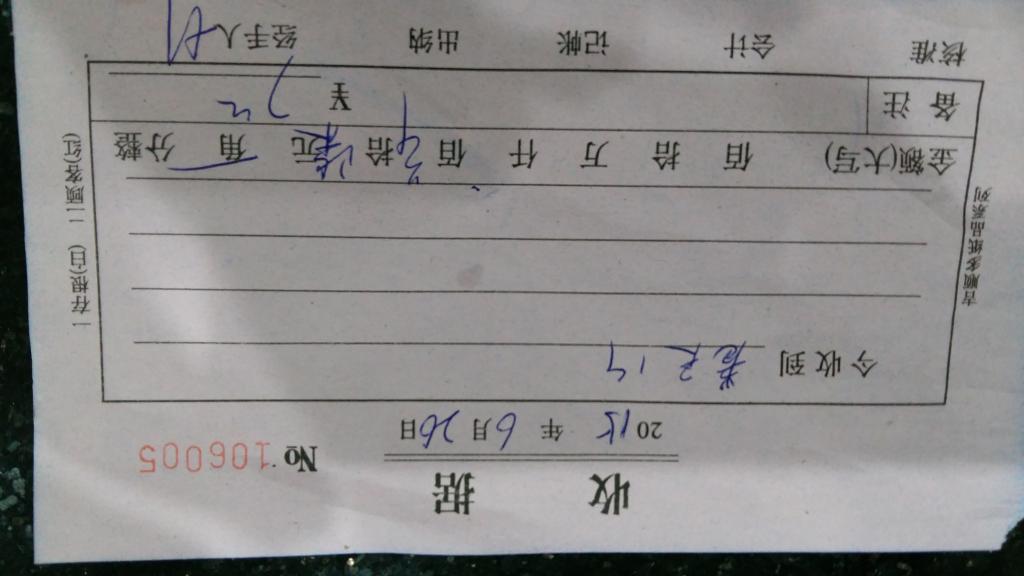 收 据
No 106005
2015 年 6 月 26 日
今收到
金额(大写) 佰 拾 万 仟 佰 拾 元 角 分整
备 注 ¥
核准 会计 记帐 出纳 经手人
一存根(白) 二顾客(红)
吉顺多纸品系列